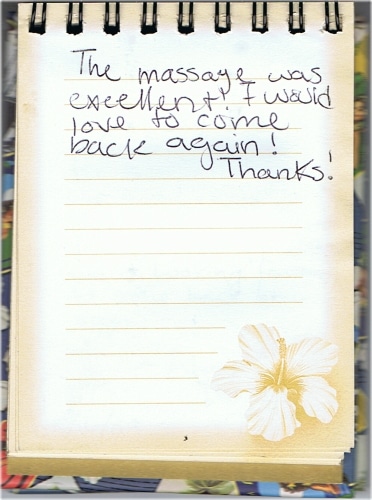 The massage was
excellent! I would
love to come
back again!
Thanks!